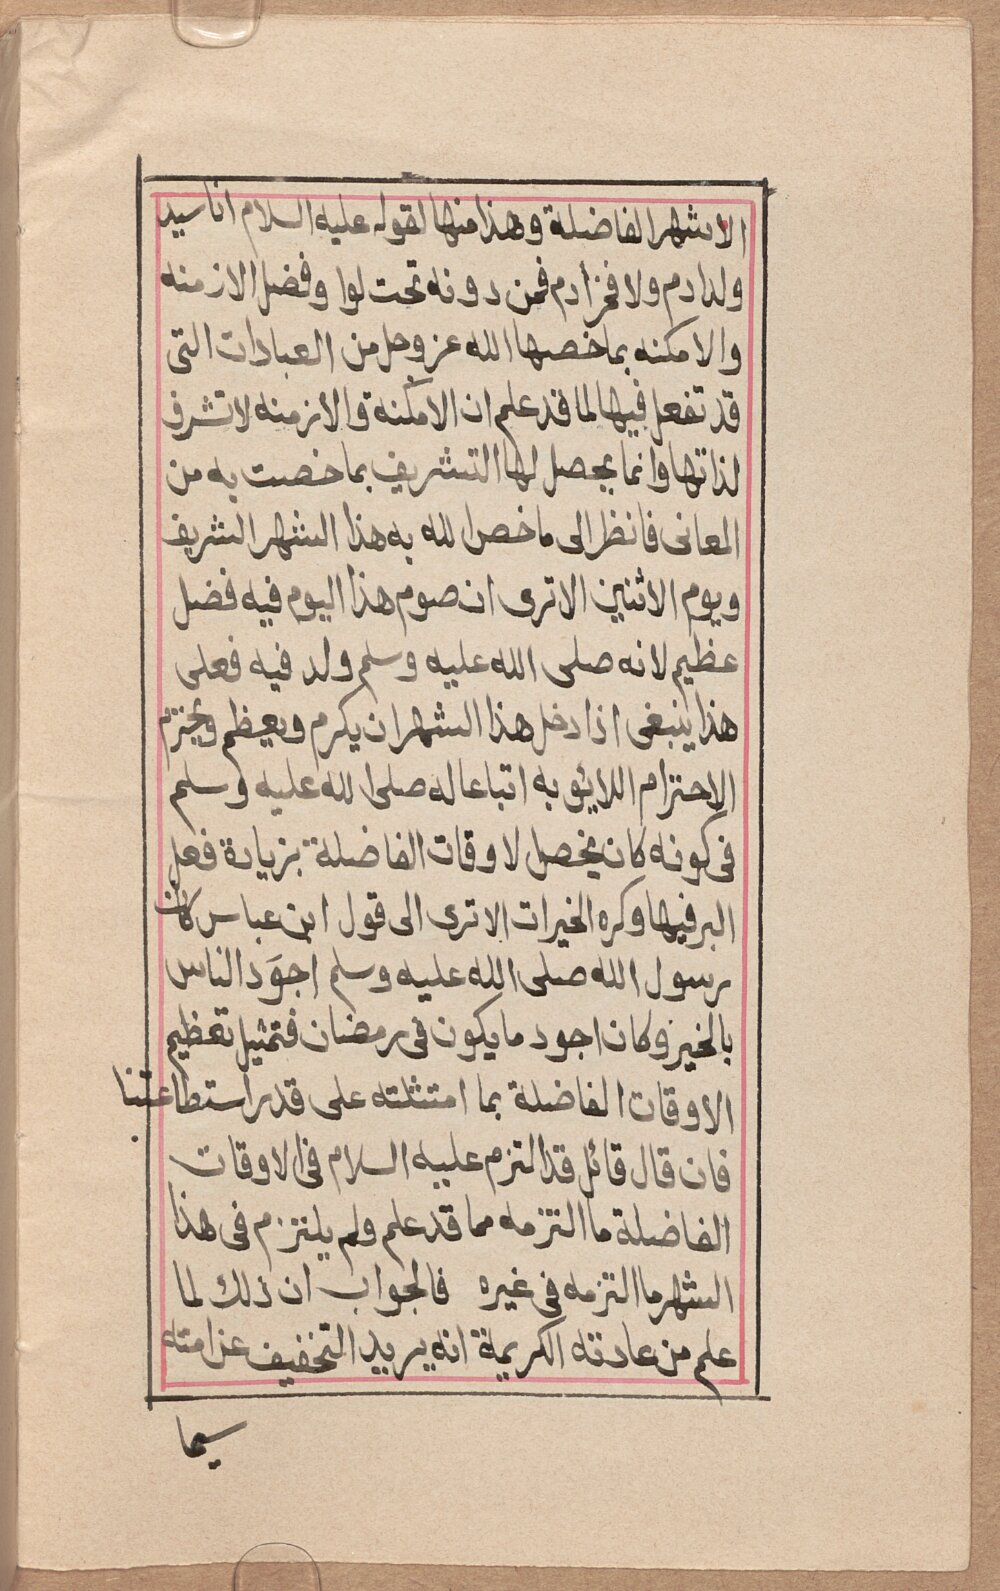 الاشهر الفاضلة وهذا منها لقوله عليه السلام انا سيد
ولد ادم ولا فخر ادم فمن دونه تحت لوا وفضل الازمنه
والامكنه بما خصها الله عز وجل من العبادات التى
قد تفعل فيها لما قد علم ان الامكنة والازمنه لا تشرف
لذاتها وانما يحصل لها التشريف بما خصت به من
المعانى فانظر الى ما خص الله به هذا الشهر الشريف
ويوم الاثنين الا ترى ان صوم هذا اليوم فيه فضل
عظيم لانه صلى الله عليه وسلم ولد فيه فعلى
هذا ينبغى اذا دخل هذا الشهر ان يكرم ويعظم ويحترم
الاحترام اللايق به اتباعا له صلى الله عليه وسلم
فى كونه كان يخص لاوقات الفاضلة بزيادة فعل
البر فيها وكره الخيرات الا ترى الى قول ابن عباس كان
رسول الله صلى الله عليه وسلم اجوَد الناس
بالخير وكان اجود ما يكون فى رمضان فتمثيل تعظيم
الاوقات الفاضلة بما امتثلته على قدر استطاعتنا
فان قال قائل قد التزم عليه السلام فى الاوقات
الفاضلة ما التزمه مما قد علم ولم يلتزم فى هذا
الشهر ما التزمه فى غيره فالجواب ان ذلك لما
علم من عادته الكريمة انه يريد التخفيف عن امته
سيما